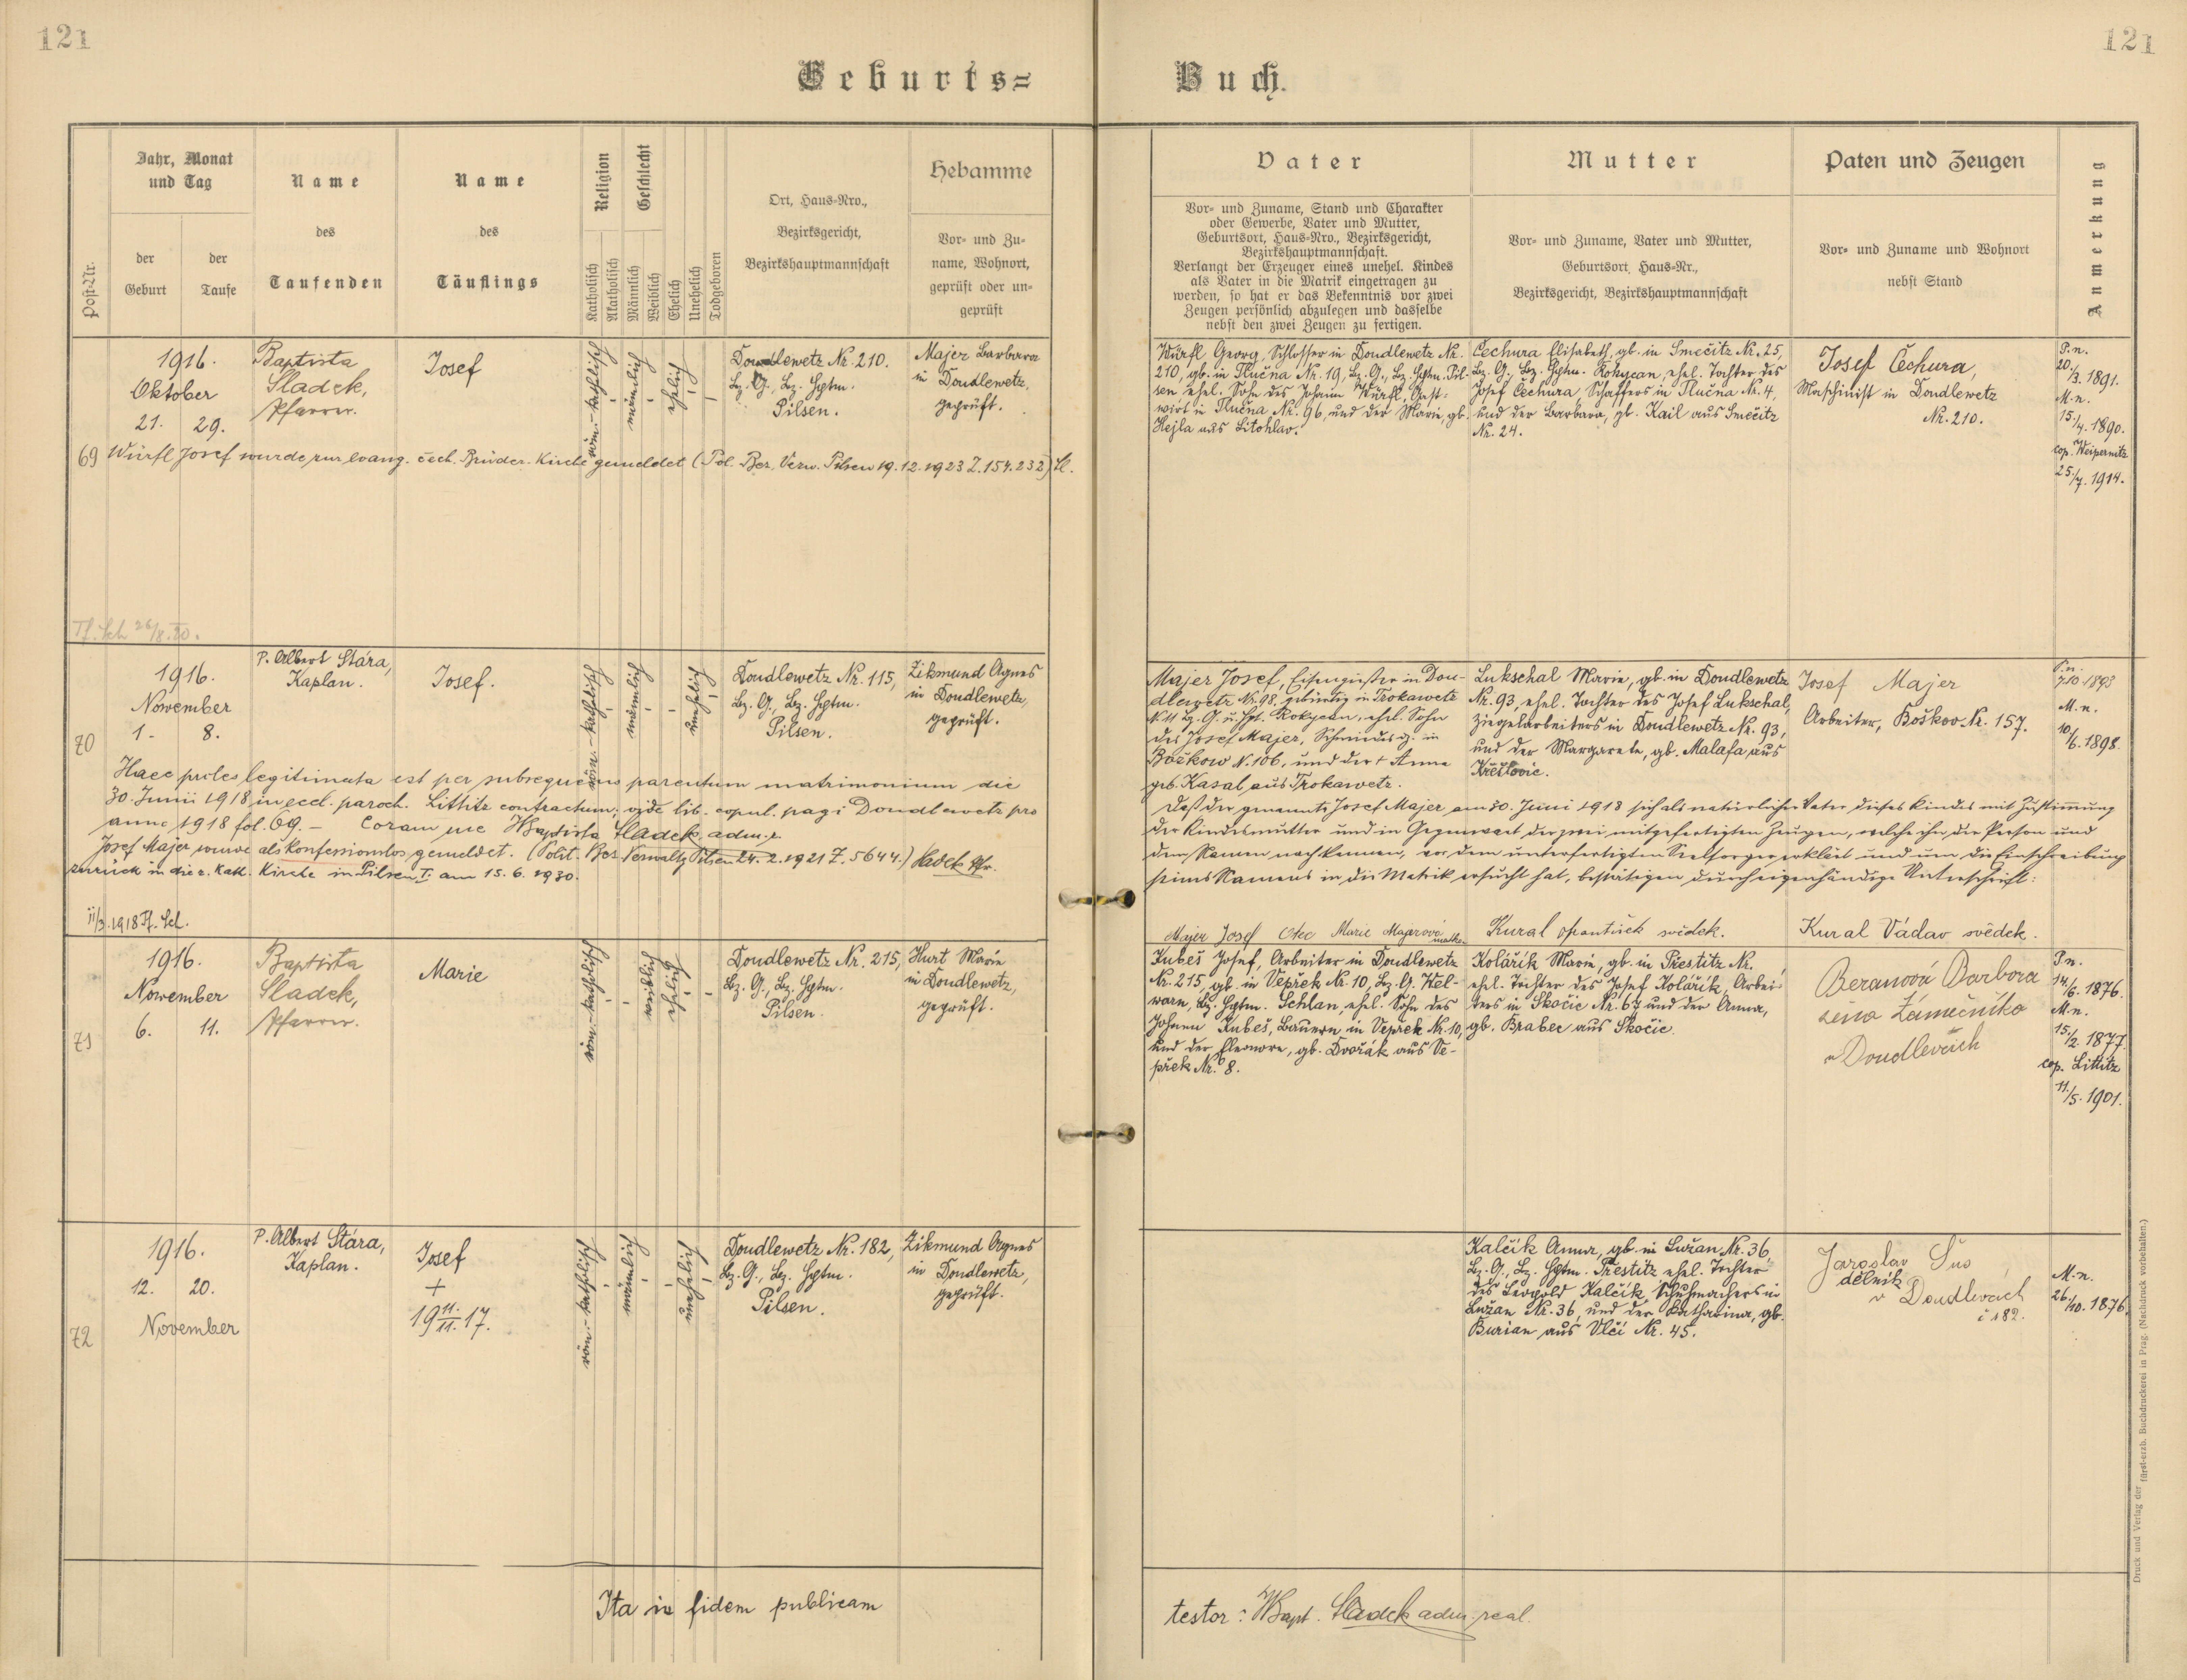 121
121
Geburts=
Buch.
Post-Nr.
Jahr, Monat
und Tag
der
Geburt
der
Taufe
Name
des
Taufenden
Name
des
Täuflings
Religion
Katholisch
Akatholisch
Geschlecht
Männlich
Weiblich
Ehelich
Unehelich
Todgeboren
Ort, Haus-Nro.,
Bezirksgericht,
Bezirkshauptmannschaft
Hebamme
Vor- und Zu-
name, Wohnort,
geprüft oder un-
geprüft
Vater
Vor- und Zuname, Stand und Charakter
oder Gewerbe, Vater und Mutter,
Geburtsort, Haus-Nro., Bezirksgericht,
Bezirkshauptmannschaft.
Verlangt der Erzeuger eines unehel. Kindes
als Vater in die Matrik eingetragen zu
werden, so hat er das Bekenntnis vor zwei
Zeugen persönlich abzulegen und dasselbe
nebst den zwei Zeugen zu fertigen.
Mutter
Vor- und Zuname, Vater und Mutter,
Geburtsort, Haus-Nr.,
Bezirksgericht, Bezirkshauptmannschaft
Paten und Zeugen
Vor- und Zuname und Wohnort
nebst Stand
Anmerkung
69
1916.
Oktober
21. 29.
Baptista
Sladek,
Pfarrer.
Josef
röm.-katholisch
männlich
ehelich
Doudlewetz Nr. 210.
Bz. G., Bz. Hptm.
Pilsen.
Majer Barbara
in Doudlewetz,
geprüft.
Würfl Josef wurde zur evang. čech. Brüder. Kirche gemeldet (Pol. Bez. Verw. Pilsen 19.12.1923 Z. 154.232) Sl.
Tf. Sch 26/8.20.
Würfl Georg, Schlosser in Doudlewetz Nr.
210, gb. in Tlučna Nr. 19, Bz. G., Bz. Hptm. Pil-
sen, ehel. Sohn des Johann Würfl, Gast-
wirt in Tlučna Nr. 96, und der Marie, gb.
Hejla aus Litohlav.
Čechura Elisabeth, gb. in Smečitz Nr. 25,
Bz. G., Bz. Hptm. Rokycan, ehel. Tochter des
Josef Čechura, Schaffers in Tlučna Nr. 4,
und der Barbara, gb. Kail aus Smečitz
Nr. 24.
Josef Čechura,
Maschinist in Doudlewetz
Nr. 210.
P.n.
20./3. 1891.
M.n.
15./4. 1890.
cop. Weipernitz
25./7. 1914.
70
1916.
November
1. 8.
P. Albert Stára,
Kaplan.
Josef.
röm.-katholisch
männlich
unehelich
Doudlewetz Nr. 115,
Bz. G., Bz. Hptm.
Pilsen.
Zikmund Agnes
in Doudlewetz,
geprüft.
Haec proles legitimata est per subsequens parentum matrimonium die
30. Junii 1918 in eccl. paroch. Littitz contractum, vide lib. copul. pagi Doudlewetz pro
anno 1918 fol. 69. – Coram me Baptista Sladek, adm. r.
Josef Majer wurde als konfessionslos gemeldet. (Polit. Bez. Verwaltg Pilsen 24.2.1921 Z. 5644.) Sladek Pfr.
zurück in die r. kath. Kirche in Pilsen I. am 15.6.1930.
11/3.1918 Tf. Sch.
Majer Josef, Eisengießer in Dou-
dlewetz Nr. 98, gebürtig in Trokawetz
N. 11 Bz. G. u. Hpt. Rokycan, ehel. Sohn
des Josef Majer, Schmiedes in
Božkow N. 106, und der † Anna
geb. Kasal aus Trokawetz.
Lukschal Marie, gb. in Doudlewetz
Nr. 93, ehel. Tochter des Josef Lukschal,
Ziegelarbeiters in Doudlewetz Nr. 93,
und der Margarete, gb. Malafa aus
Křešovic.
Josef Majer
Arbeiter, Boškov Nr. 157.
P.n.
7.10.1893
M.n.
10./6. 1898.
Daß der genannte Josef Majer am 30. Juni 1918 sich als natürlicher Vater dieses Kindes mit Zustimmung
der Kindesmutter und in Gegenwart der zwei mitgefertigten Zeugen, welche ihn der Person und
dem Namen nach kennen, vor dem unterfertigten Seelsorger erklärt und um die Einschreibung
seines Namens in die Matrik ersucht hat, bestätigen durch eigenhändige Unterschrift:
Majer Josef Otec Marie Majerová matka
Kural František svědek.
Kural Václav svědek.
71
1916.
November
6. 11.
Baptista
Sladek,
Pfarrer.
Marie
röm.-katholisch
weiblich
ehelich
Doudlewetz Nr. 215,
Bz. G., Bz. Hptm.
Pilsen.
Hurt Marie
in Doudlewetz,
geprüft.
Kubeš Josef, Arbeiter in Doudlewetz
Nr. 215, gb. in Vepřek Nr. 10, Bz. G. Wel-
warn, Bz. Hptm. Schlan, ehel. Sohn des
Johann Kubeš, Bauern in Vepřek Nr. 10,
und der Eleonore, gb. Dvořák aus Ve-
přek Nr. 8.
Kolářík Marie, gb. in Přestitz Nr.
ehel. Tochter des Josef Kolářík, Arbei-
ters in Skočic Nr. 67 und der Anna,
gb. Brabec aus Skočic.
Beranová Barbora
žena Zámečníka
v Doudlevcích
P.n.
14./6. 1876.
M.n.
15./2. 1877.
cop. Littitz
11./5. 1901.
72
1916.
12. 20.
November
P. Albert Stára,
Kaplan.
Josef
+
19 11./11. 17.
röm.-katholisch
männlich
unehelich
Doudlewetz Nr. 182,
Bz. G., Bz. Hptm.
Pilsen.
Zikmund Agnes
in Doudlewetz,
geprüft.
Kalčík Anna, gb. in Lužan Nr. 36,
Bz. G., Bz. Hptm. Přestitz ehel. Tochter
des Leopold Kalčík, Schuhmachers in
Lužan Nr. 36, und der Katharina, gb.
Burian aus Vlčí Nr. 45.
Jaroslav
dělník
v Doudlevcích
č 182.
M.n.
26./10. 1876.
Ita in fidem publicam
testor: Bapt. Sladek adm. real.
Druck und Verlag der fürst-erzb. Buchdruckerei in Prag. (Nachdruck vorbehalten.)